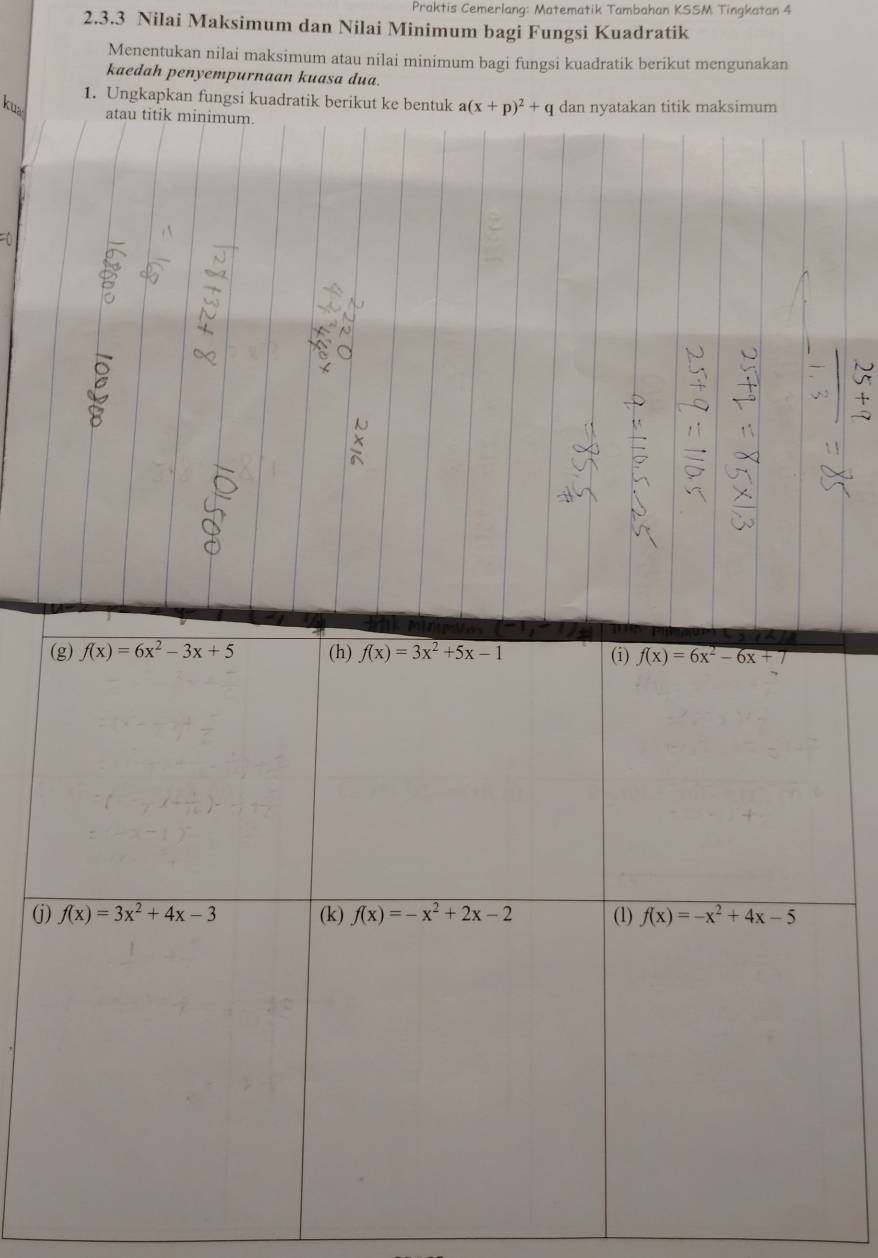 Praktis Cemerlang: Matematik Tambahan KSSM Tingkatan 4
2.3.3 Nilai Maksimum dan Nilai Minimum bagi Fungsi Kuadratik
Menentukan nilai maksimum atau nilai minimum bagi fungsi kuadratik berikut mengunakan
kaedah penyempurnaan kuasa dua.
1. Ungkapkan fungsi kuadratik berikut ke bentuk a(x + p)² + q dan nyatakan titik maksimum
atau titik minimum.
kua
=0
25 + q
1.3
= 85
25 + q = 85 × 1.3
25 + q = 110.5
q = 110.5 - 25
= 85.5 #
2220
2×16
128 + 32 + 8
101500
= 168
168000 100800
(g) f(x) = 6x² − 3x + 5
(h) f(x) = 3x² +5x − 1
(i) f(x) = 6x² − 6x + 7
(j) f(x) = 3x² + 4x − 3
(k) f(x) = − x² + 2x − 2
(l) f(x) = −x² + 4x − 5